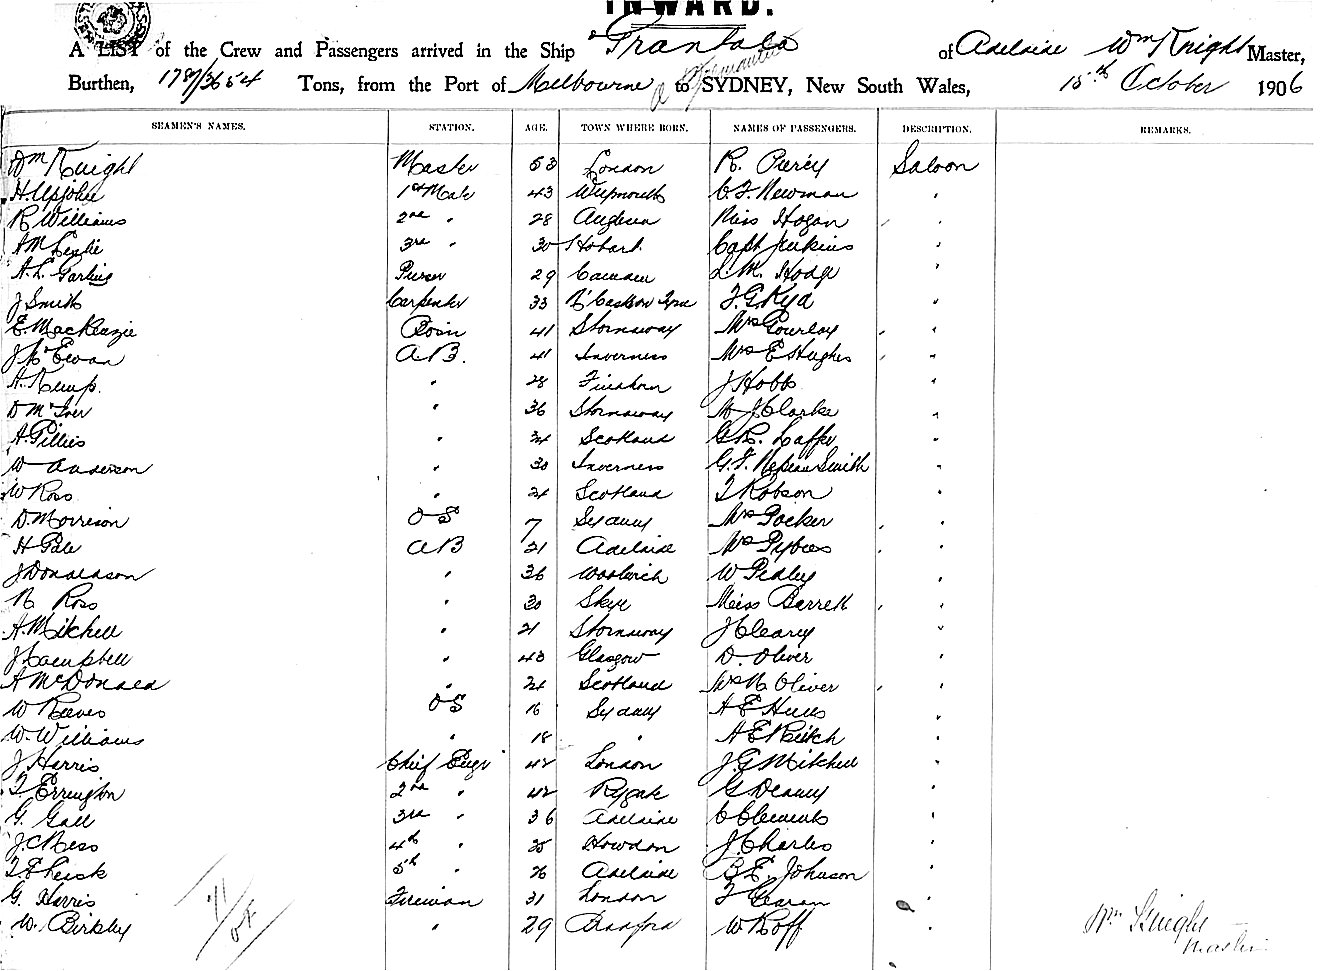 INWARD.
A LIST of the Crew and Passengers arrived in the Ship "Grantala of Adelaide Wm Knight Master,
Burthen, 1787/3654 Tons, from the Port of Melbourne to SYDNEY, New South Wales, 15th October 1906
SEAMEN'S NAMES. STATION. AGE. TOWN WHERE BORN. NAMES OF PASSENGERS. DESCRIPTION. REMARKS.
Wm Knight Master 53 London R. Piercy Saloon
H. Upjohn 1st Mate 43 Weymouth C. F. Newman "
R Williams 2nd " 28 Miss Hogan "
A M Leslie 3rd " 30 Hobart Capt Jenkins "
A. L. Garling Purser 29 Camden L. M. Hodge "
J Smith Carpenter 33 N'Castle on Tyne F. G. Kyd "
E. MacKenzie Bosin 41 Stornaway Mrs Gourlay "
J McEwan AB. 41 Inverness Mrs E Hughes "
A. Kemp. " 28 Findhorn J Hobbs "
D McIver " 36 Stornaway W J Clarke "
A. Gillies " 24 Scotland "
W Anderson " 30 Inverness G. F. Nepean Smith "
W Ross " 21 Scotland T Robson "
D. Morrison OS 17 Sydney Mrs Pocker "
H Pale AB 21 Adelaide "
J Donaldson " 36 Woolwich W Pedley "
N Ross " 30 Skye Miss Barrett "
A. Mitchell " 21 Stornaway J Cleary "
J Campbell " 43 Glasgow D. Oliver "
A McDonald " 21 Scotland Mrs N Oliver "
W Reeves OS 16 Sydney "
W. Williams " 18 " "
J Harris Chief Engr 42 London J. G Mitchell "
T Errington 2nd " 42 Rygate G Deaney "
G. Gall 3rd " 36 Adelaide C Clements "
4th " 25 Howdon J. Charles "
5th " 26 Adelaide B. E. Johnson "
G. Harris Fireman 31 London "
W. Birkby " 29 Bradford W Roff "
Wm Knight
Master